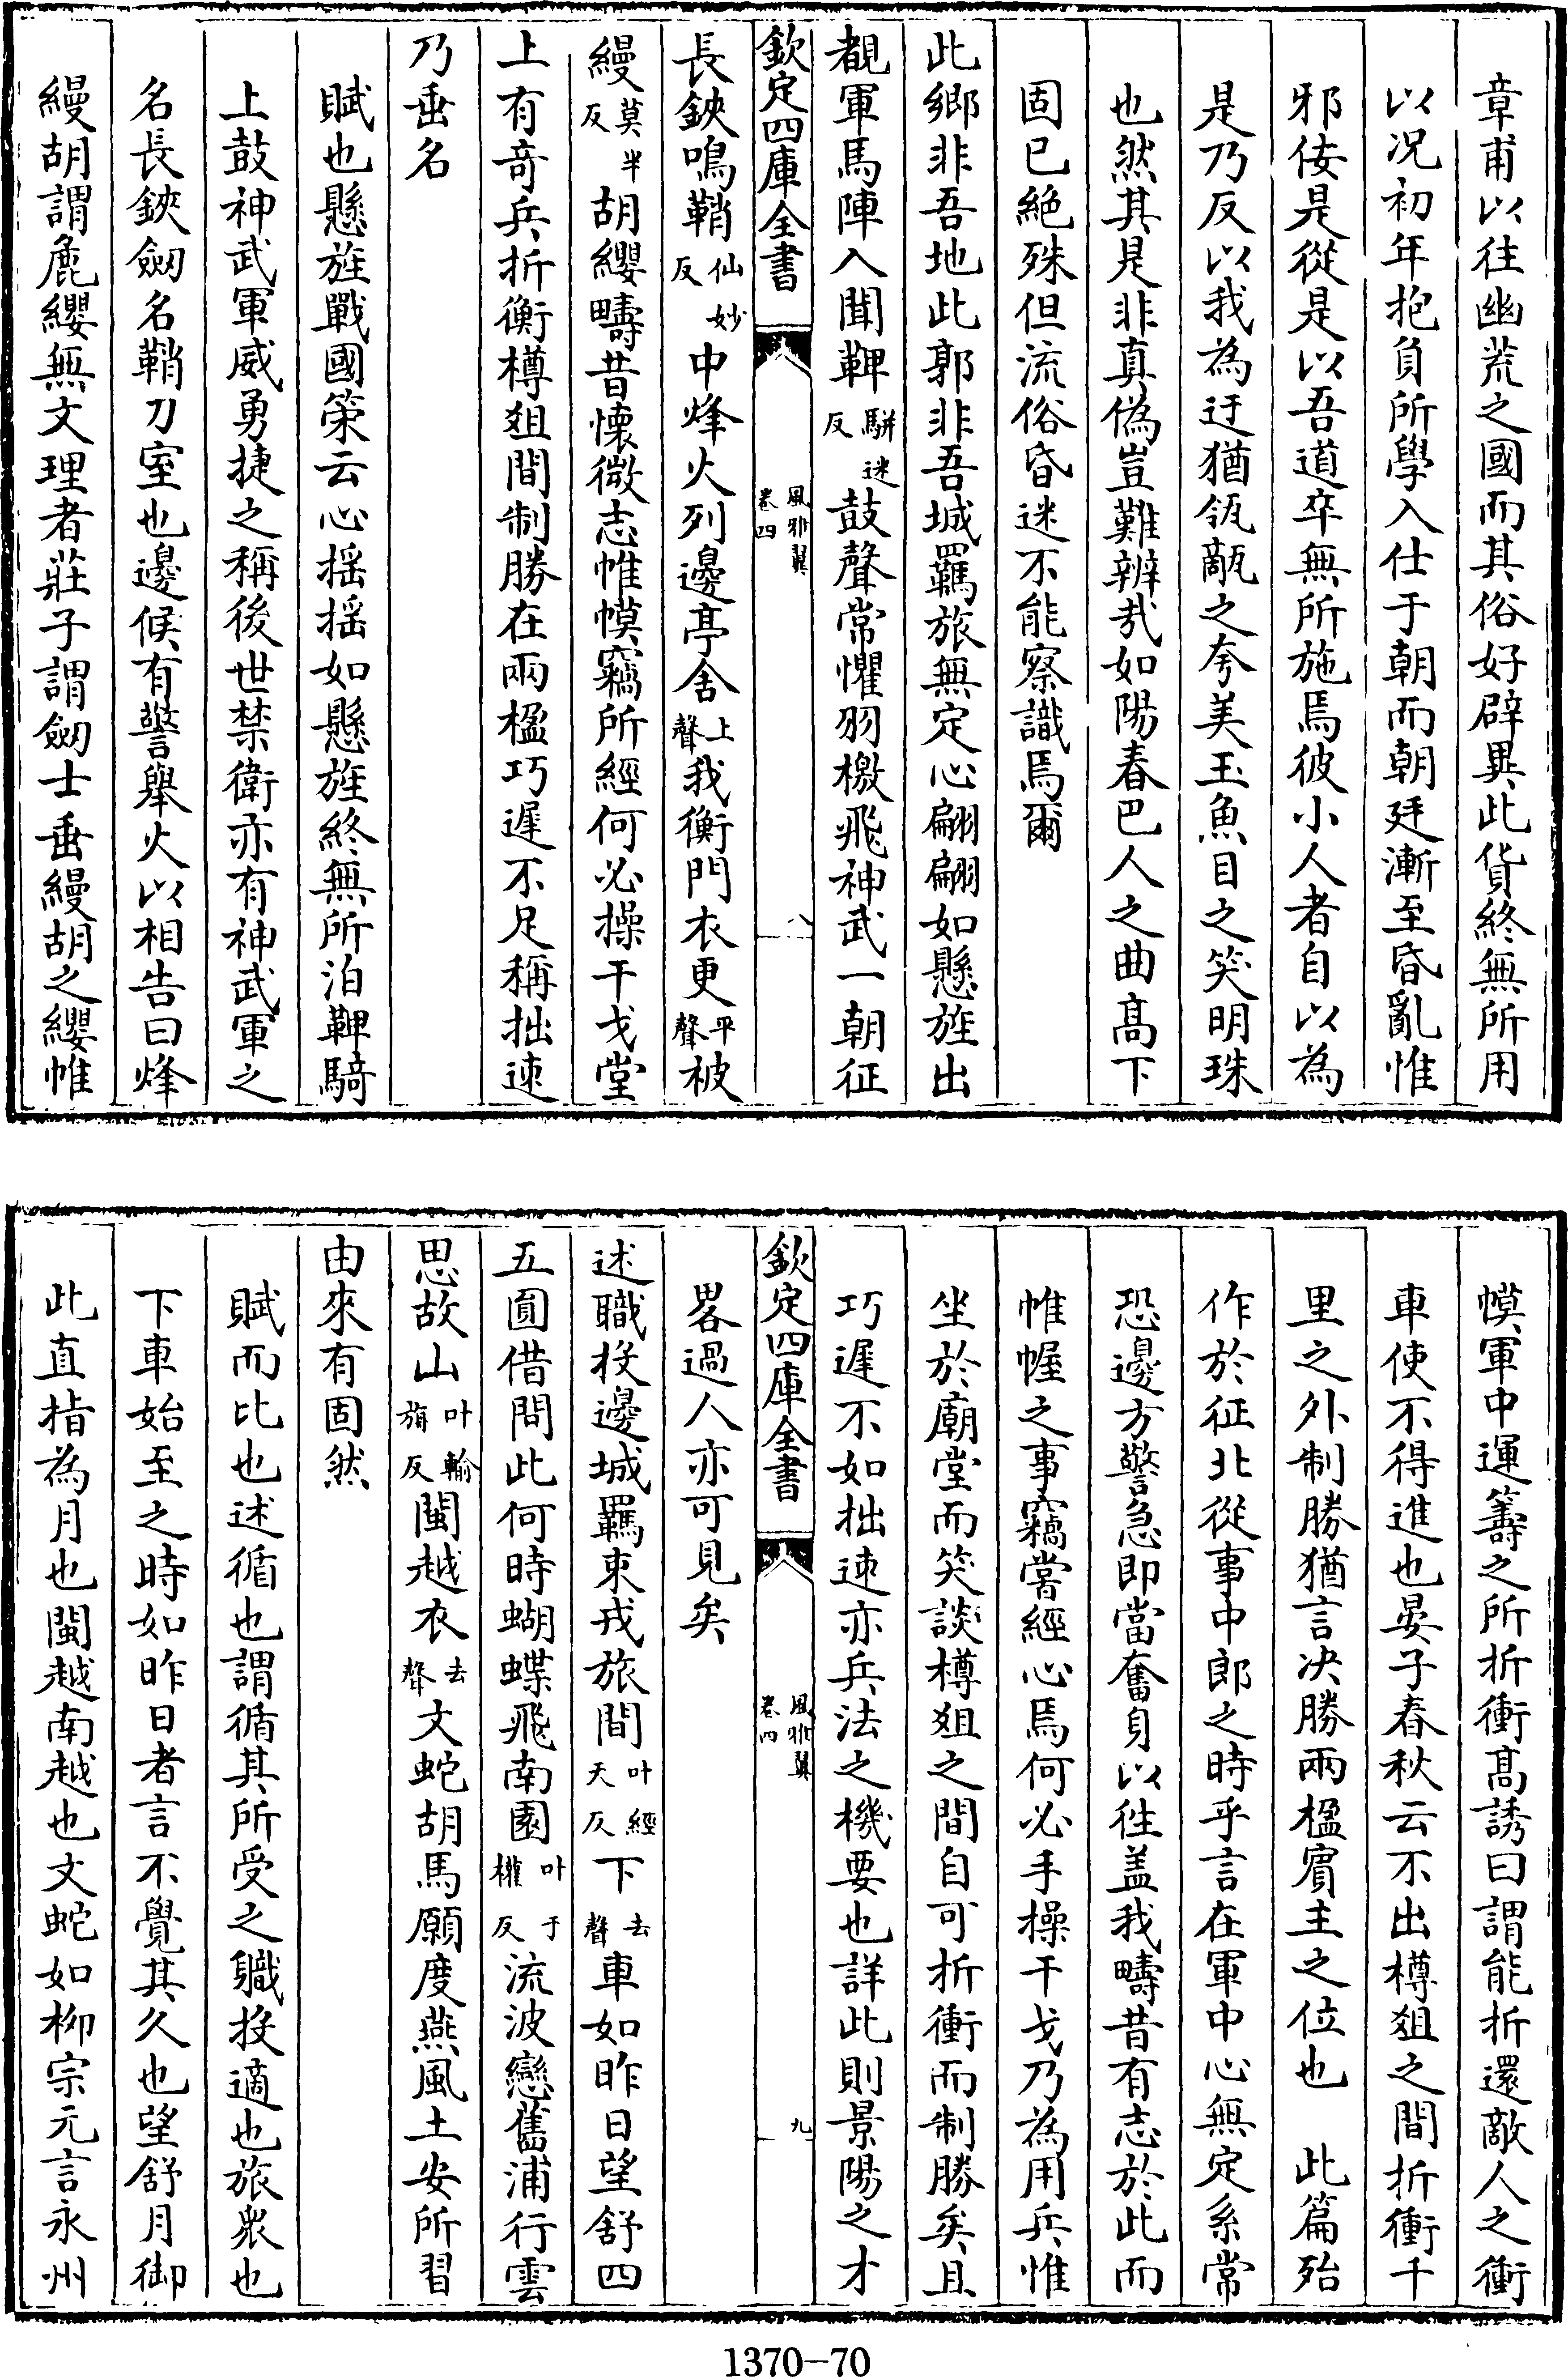 章甫以往幽荒之國而其俗好辟異此貨終無所用
以况初年抱負所學入仕于朝而朝廷漸至昏亂惟
邪佞是從是以吾道卒無所施焉彼小人者自以為
是乃反以我為迂猶瓴甋之夸美玉魚目之笑明珠
也然其是非真偽豈難辨哉如陽春巴人之曲髙下
固已絶殊但流俗昏迷不能察識焉爾
此鄉非吾地此郭非吾城羈旅無定心翩翩如懸旌出
覩軍馬陣入聞鞞駢迷反鼓聲常懼羽檄飛神武一朝征
欽定四庫全書 風雅翼 卷四 八
長鋏鳴鞘仙妙反中烽火列邊亭舍上聲我衡門衣更平聲被
縵莫半反胡纓疇昔懷微志帷幙竊所經何必操干戈堂
上有竒兵折衡樽爼間制勝在兩楹巧遲不足稱拙速
乃垂名
賦也懸旌戰國策云心揺揺如懸旌終無所泊鞞騎
上鼓神武軍威勇捷之稱後世禁衛亦有神武軍之
名長鋏劒名鞘刀室也邊候有警舉火以相告曰烽
縵胡謂麄纓無文理者莊子謂劒士垂縵胡之纓帷
幙軍中運籌之所折衝髙誘曰謂能折還敵人之衝
車使不得進也晏子春秋云不出樽爼之間折衝千
里之外制勝猶言决勝兩楹賓主之位也 此篇殆
作於征北從事中郎之時乎言在軍中心無定系常
恐邊方警急即當奮身以徃盖我疇昔有志於此而
帷幄之事竊嘗經心焉何必手操干戈乃為用兵惟
坐於廟堂而笑談樽爼之間自可折衝而制勝矣且
巧遲不如拙速亦兵法之機要也詳此則景陽之才
欽定四庫全書 風雅翼 卷四 九
畧過人亦可見矣
述職投邊城羈束戎旅間叶經天反下去聲車如昨日望舒四
五圓借問此何時蝴蝶飛南園叶于權反流波戀舊浦行雲
思故山叶輸旃反閩越衣去聲文蛇胡馬願度燕風土安所習
由來有固然
賦而比也述循也謂循其所受之職投適也旅衆也
下車始至之時如昨日者言不覺其久也望舒月御
此直指為月也閩越南越也文蛇如栁宗元言永州
1370-70